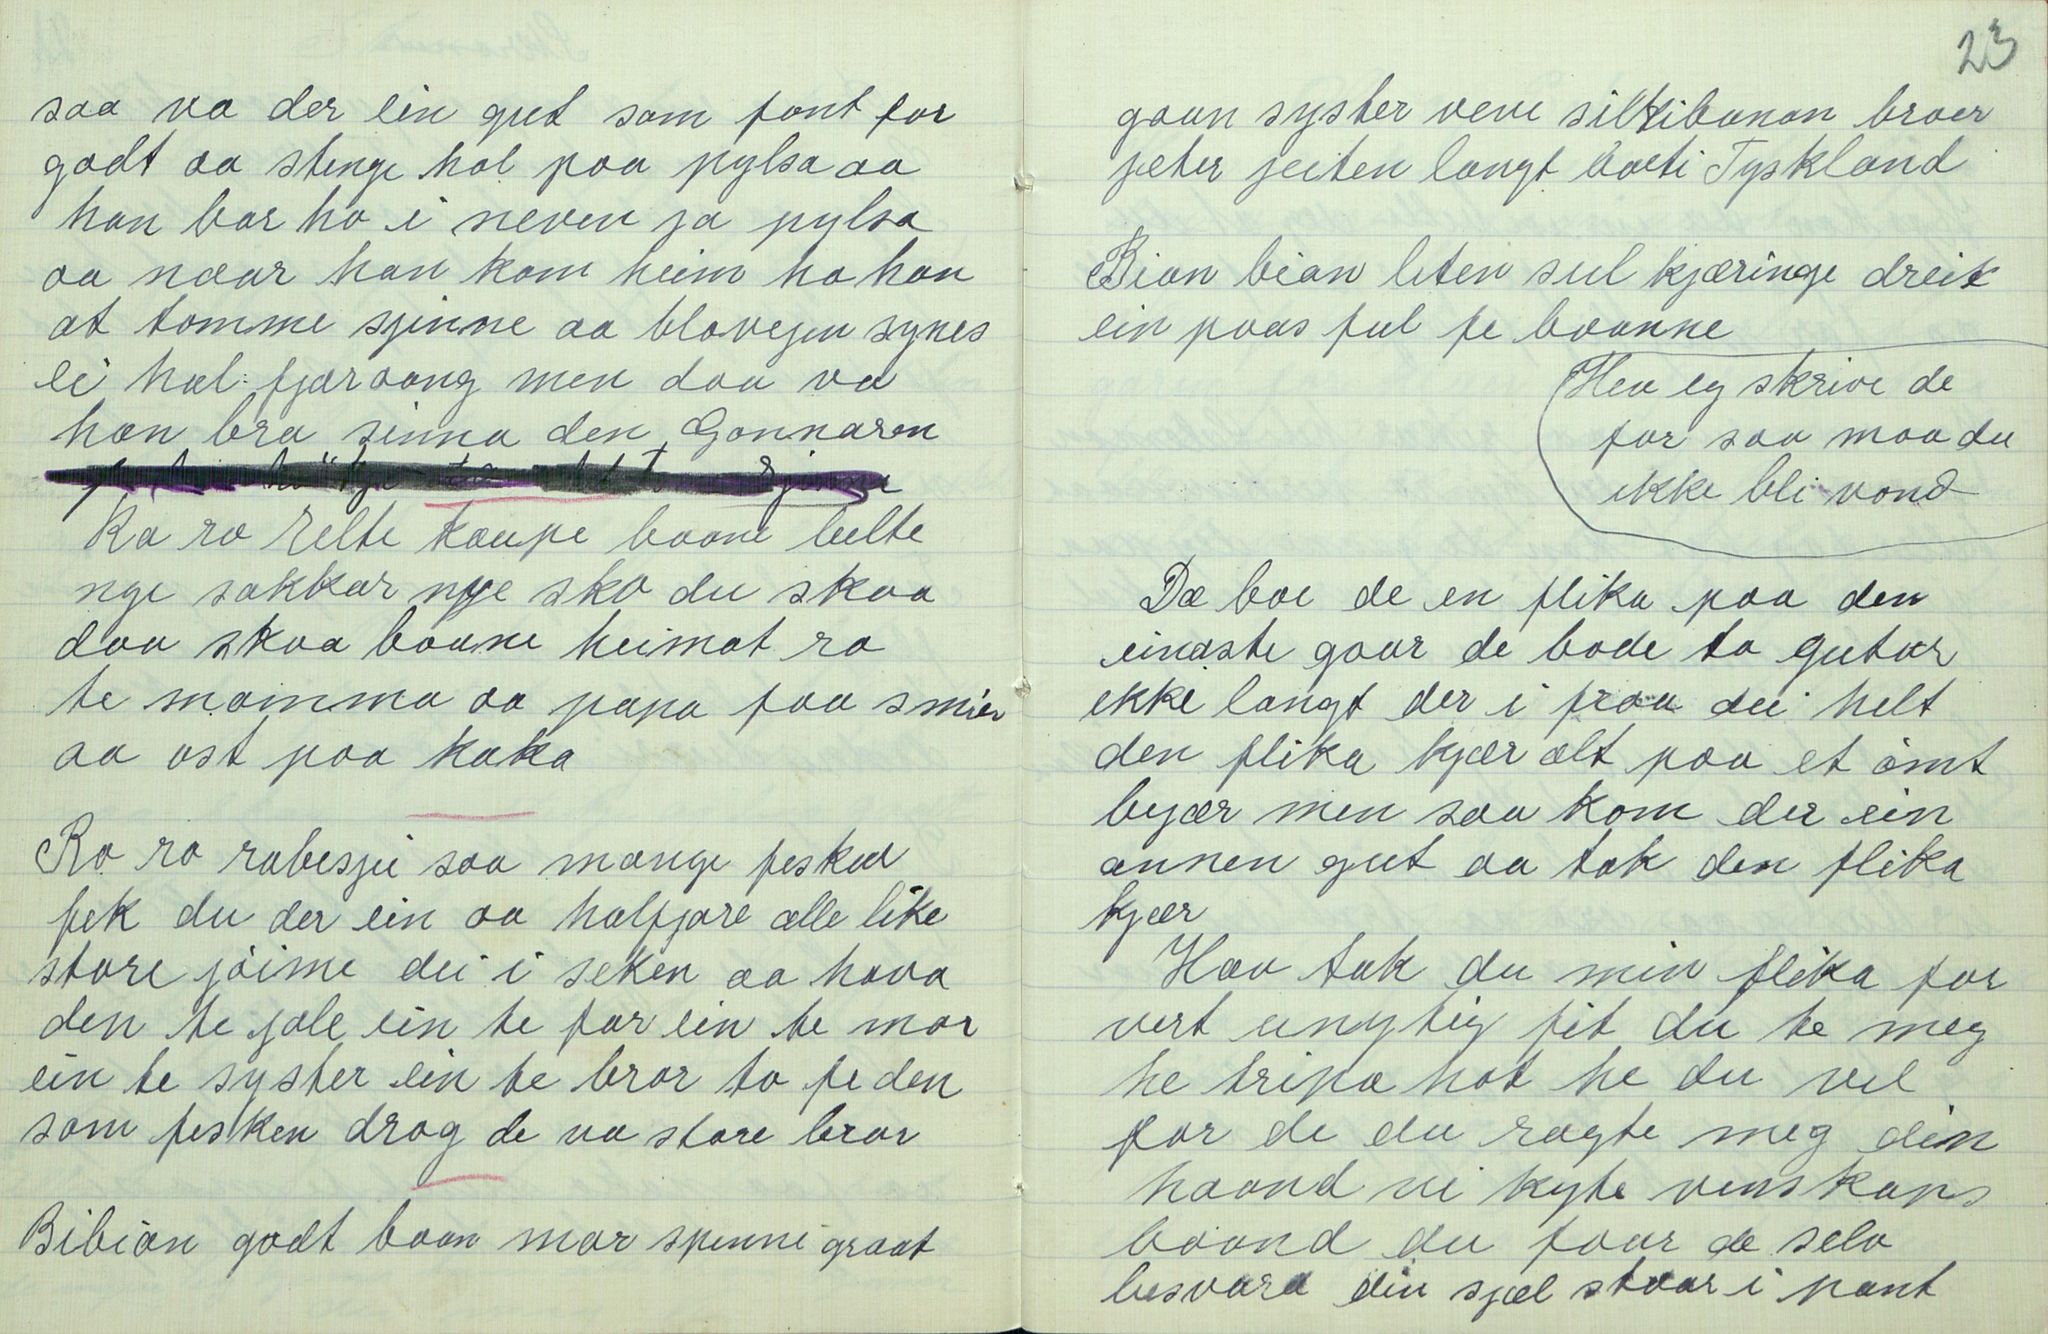 saa va der ein gut som font for
godt aa stenge hol paa pylsa aa
han bar ho i neven ja pylsa
aa naar han kom heim ha han
at tomme sjinne aa blovejen synes
ei hal fjæraang men daa va
han bra sinna den Gonnaren
Ra ro relte kaupe baane belte
nye sokkar nye sko du skaa
daa skaa baane heimat ro
te mamma aa papa faa smier
aa ost paa kaka
Ro ro rabesjei saa mange fesker
fek du der ein aa halfjore alle like
store jøime dei i seken aa hava
den te jole ein te far ein te mor
ein te syster ein te bror to te den
som fesken drog de va store bror
Bibian godt baan mor spenne graat
23
gaan syster veve silkibanan broer
jeter jeiten langt boeti Tyskland
Bian bian leten sul kjæringe dreit
ein paas ful fe baanne
Hev eg skrive de
før saa maa du
ikke bli vond
Dæ boe de en flika paa den
eindste gaar de bode to gutar
ikke langt der i fraa dei helt
den flika kjær alt paa et ømt
byær men saa kom der ein
annen gut aa tok den flika
kjær
Hav tak du min flika for
vert unytig fit du te meg
he tripa hot he du vel
for de du ragte meg din
haand vi kyte venskaps
baand du faar de selv
besvara din sjæl staar i pant